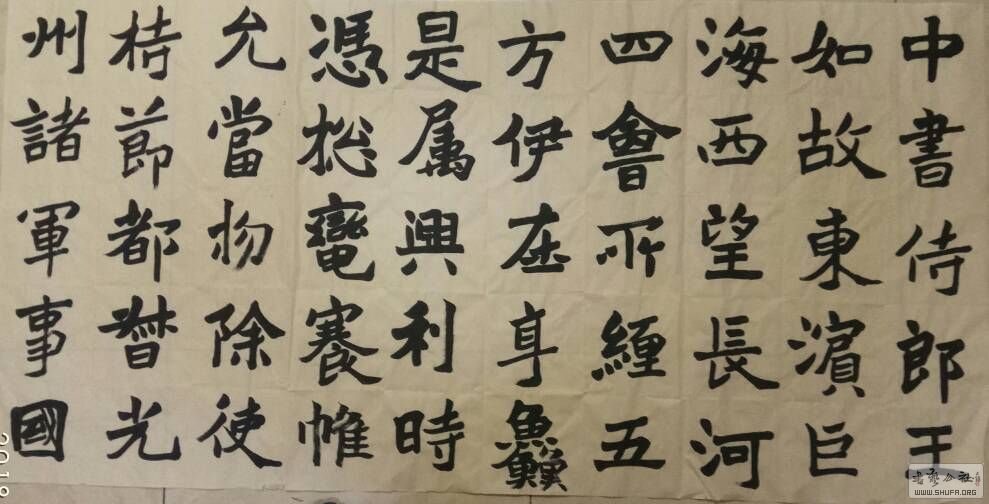 中書侍郎王
如故東濵巨
海西望長河
四會所纏五
方伊在
是属興利時
憑揔褰帷
允當物除使
持節都督光
州諸軍事國
WWW.SHUFA.ORG